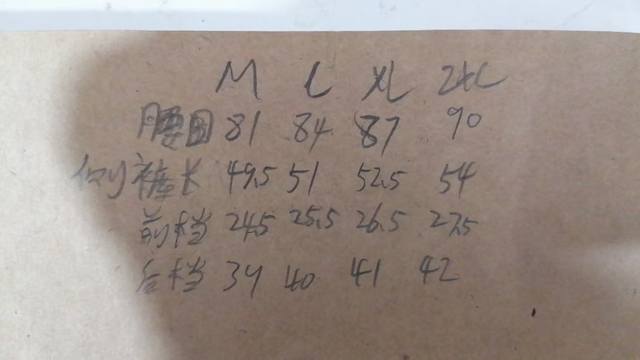 M L XL 2XL
腰围 81 84 87 90
侧裤长 49.5 51 52.5 54
前档 24.5 25.5 26.5 27.5
后档 39 40 41 42